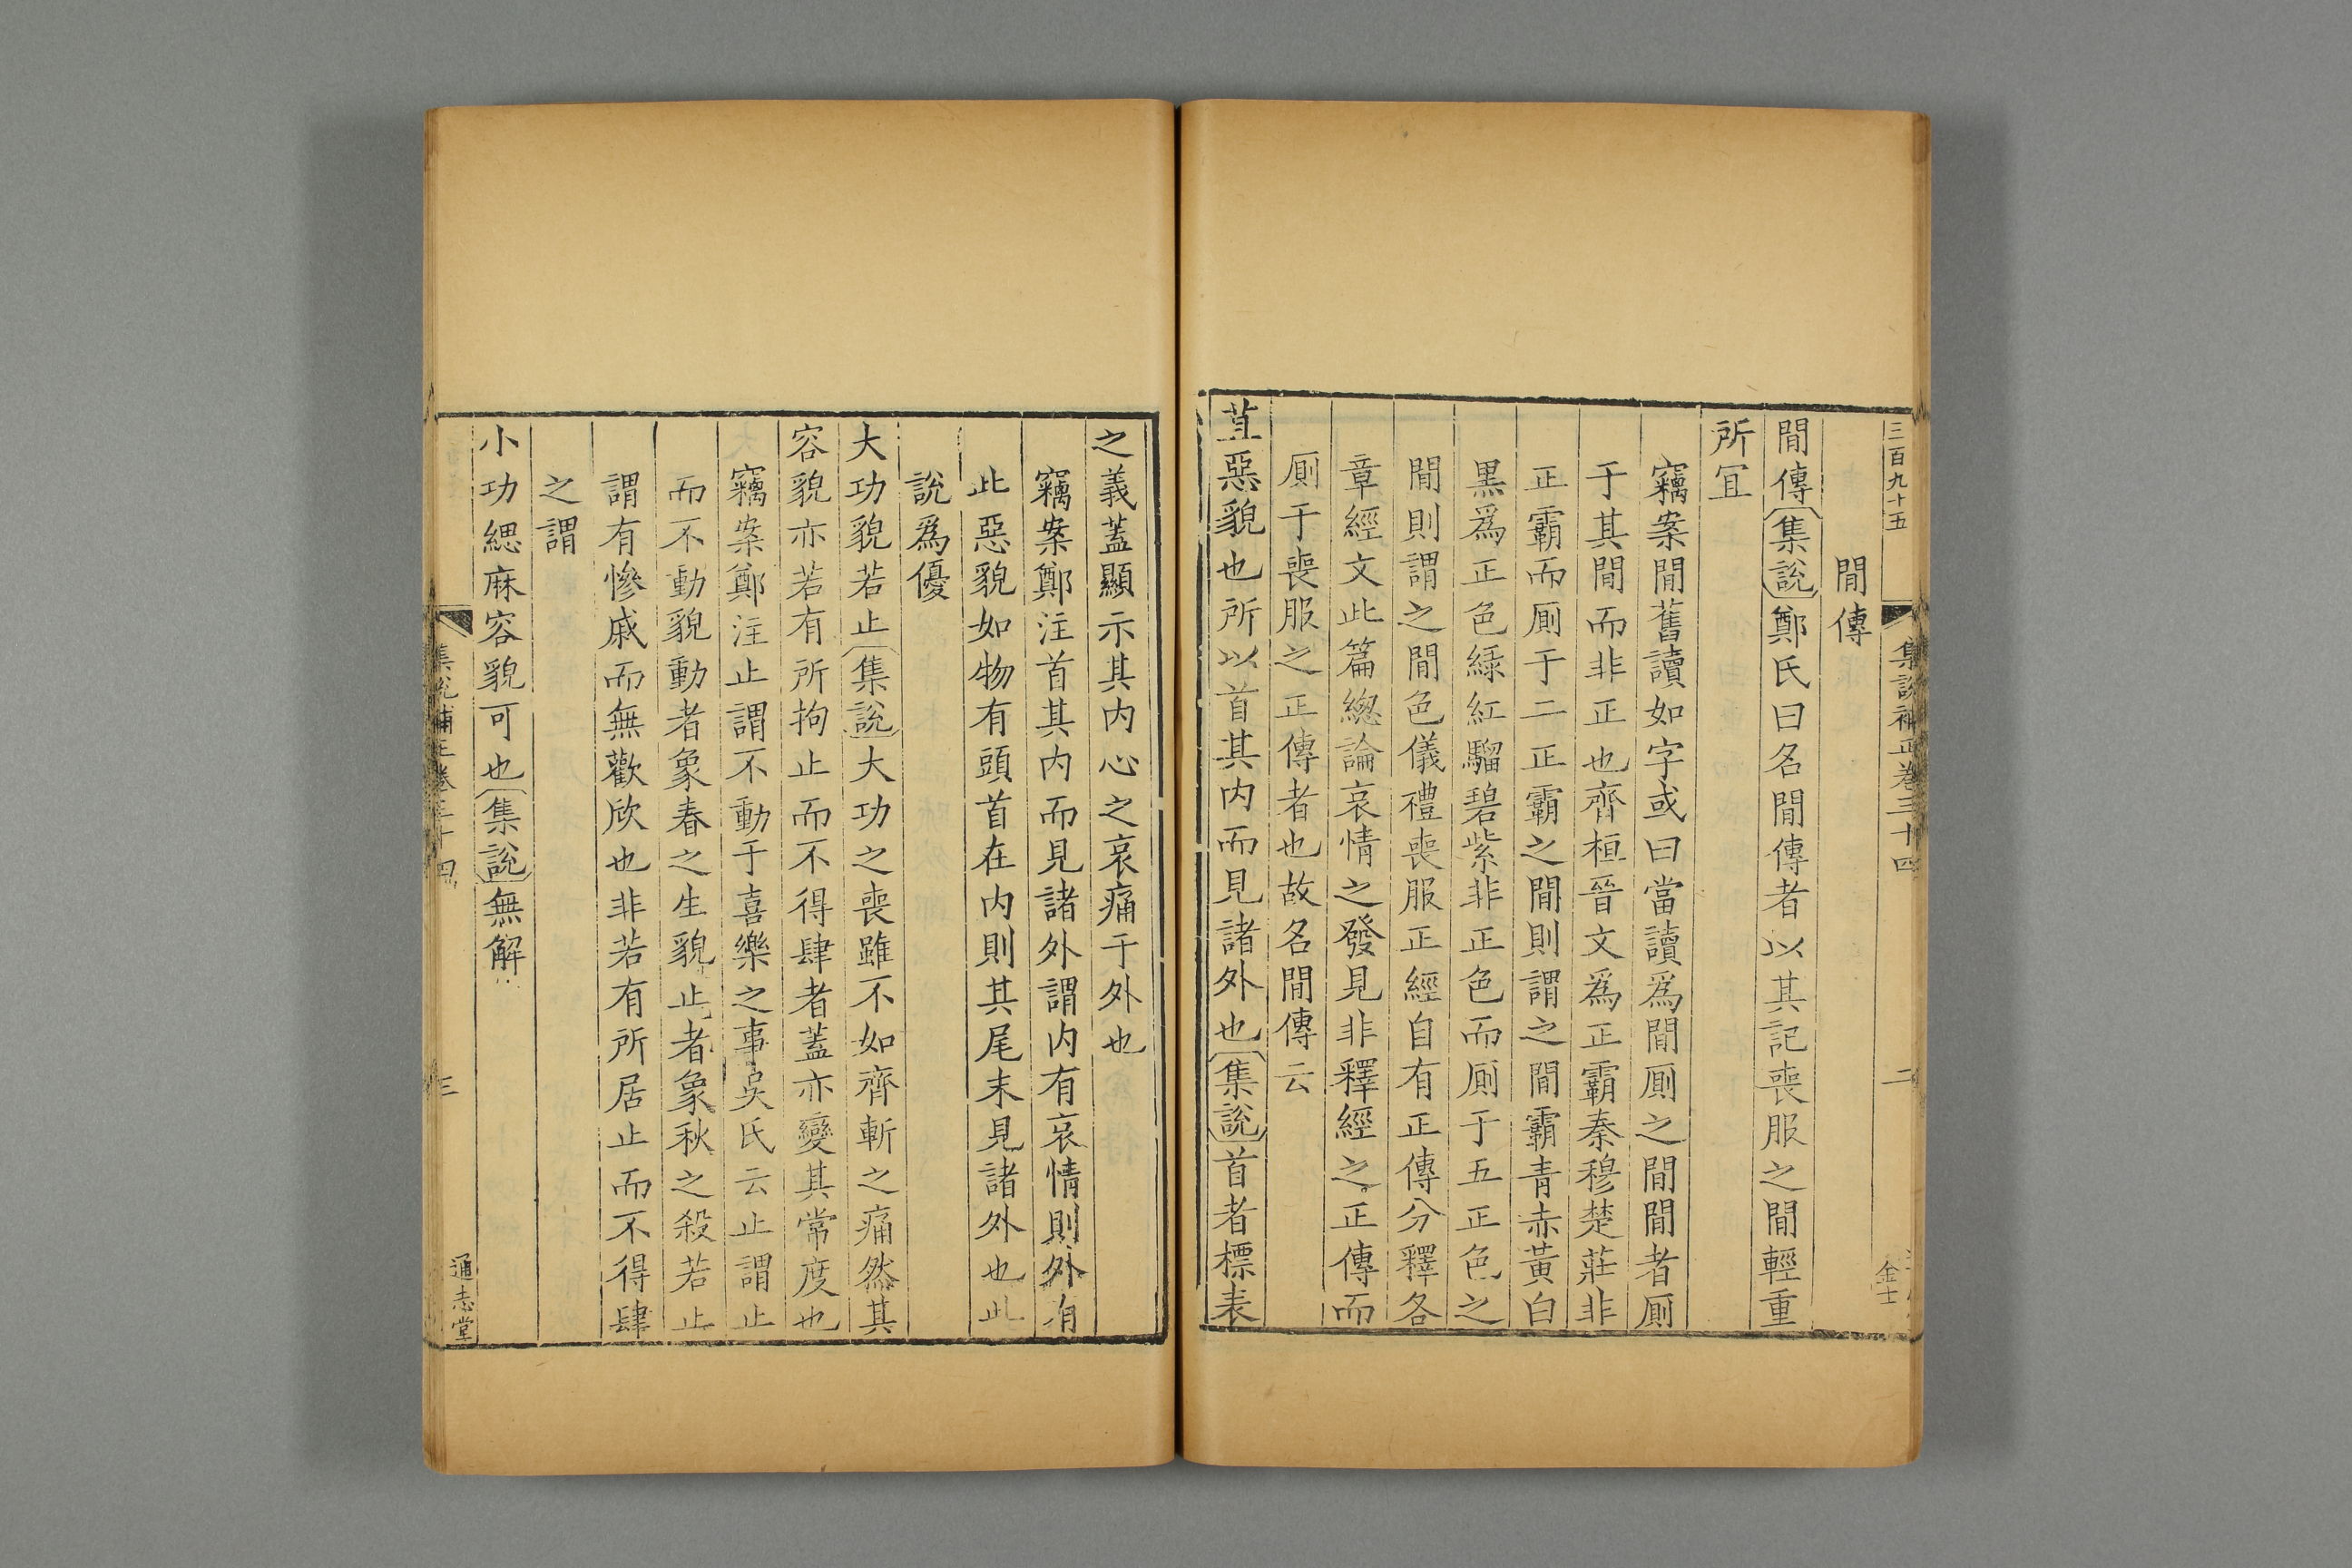 三百九十五
集說補正卷三十四
二
金士
間傳
間傳集說鄭氏曰名間傳者以其記喪服之間輕重
所宜
竊案間舊讀如字或曰當讀為間厠之間間者厠
于其間而非正也齊桓晉文為正霸秦穆楚莊非
正霸而厠于二正霸之間則謂之間霸青赤黃白
黑為正色綠紅騮碧紫非正色而厠于五正色之
間則謂之間色儀禮喪服正經自有正傳分釋各
章經文此篇總論哀情之發見非釋經之正傳而
厠于喪服之正傳者也故名間傳云
苴惡貌也所以首其内而見諸外也集說首者標表
之義蓋顯示其内心之哀痛于外也
竊案鄭注首其内而見諸外謂内有哀情則外有
此惡貌如物有頭首在内則其尾末見諸外也此
說爲優
大功貌若止集說大功之喪雖不如齊斬之痛然其
容貌亦若有所拘止而不得肆者蓋亦變其常度也
竊案鄭注止謂不動于喜樂之事吳氏云止謂止
而不動貌動者象春之生貌止者象秋之殺若止
謂有慘戚而無歡欣也非若有所居止而不得肆
之謂
小功緦麻容貌可也集說無解
集說補正卷三十四
三
通志堂